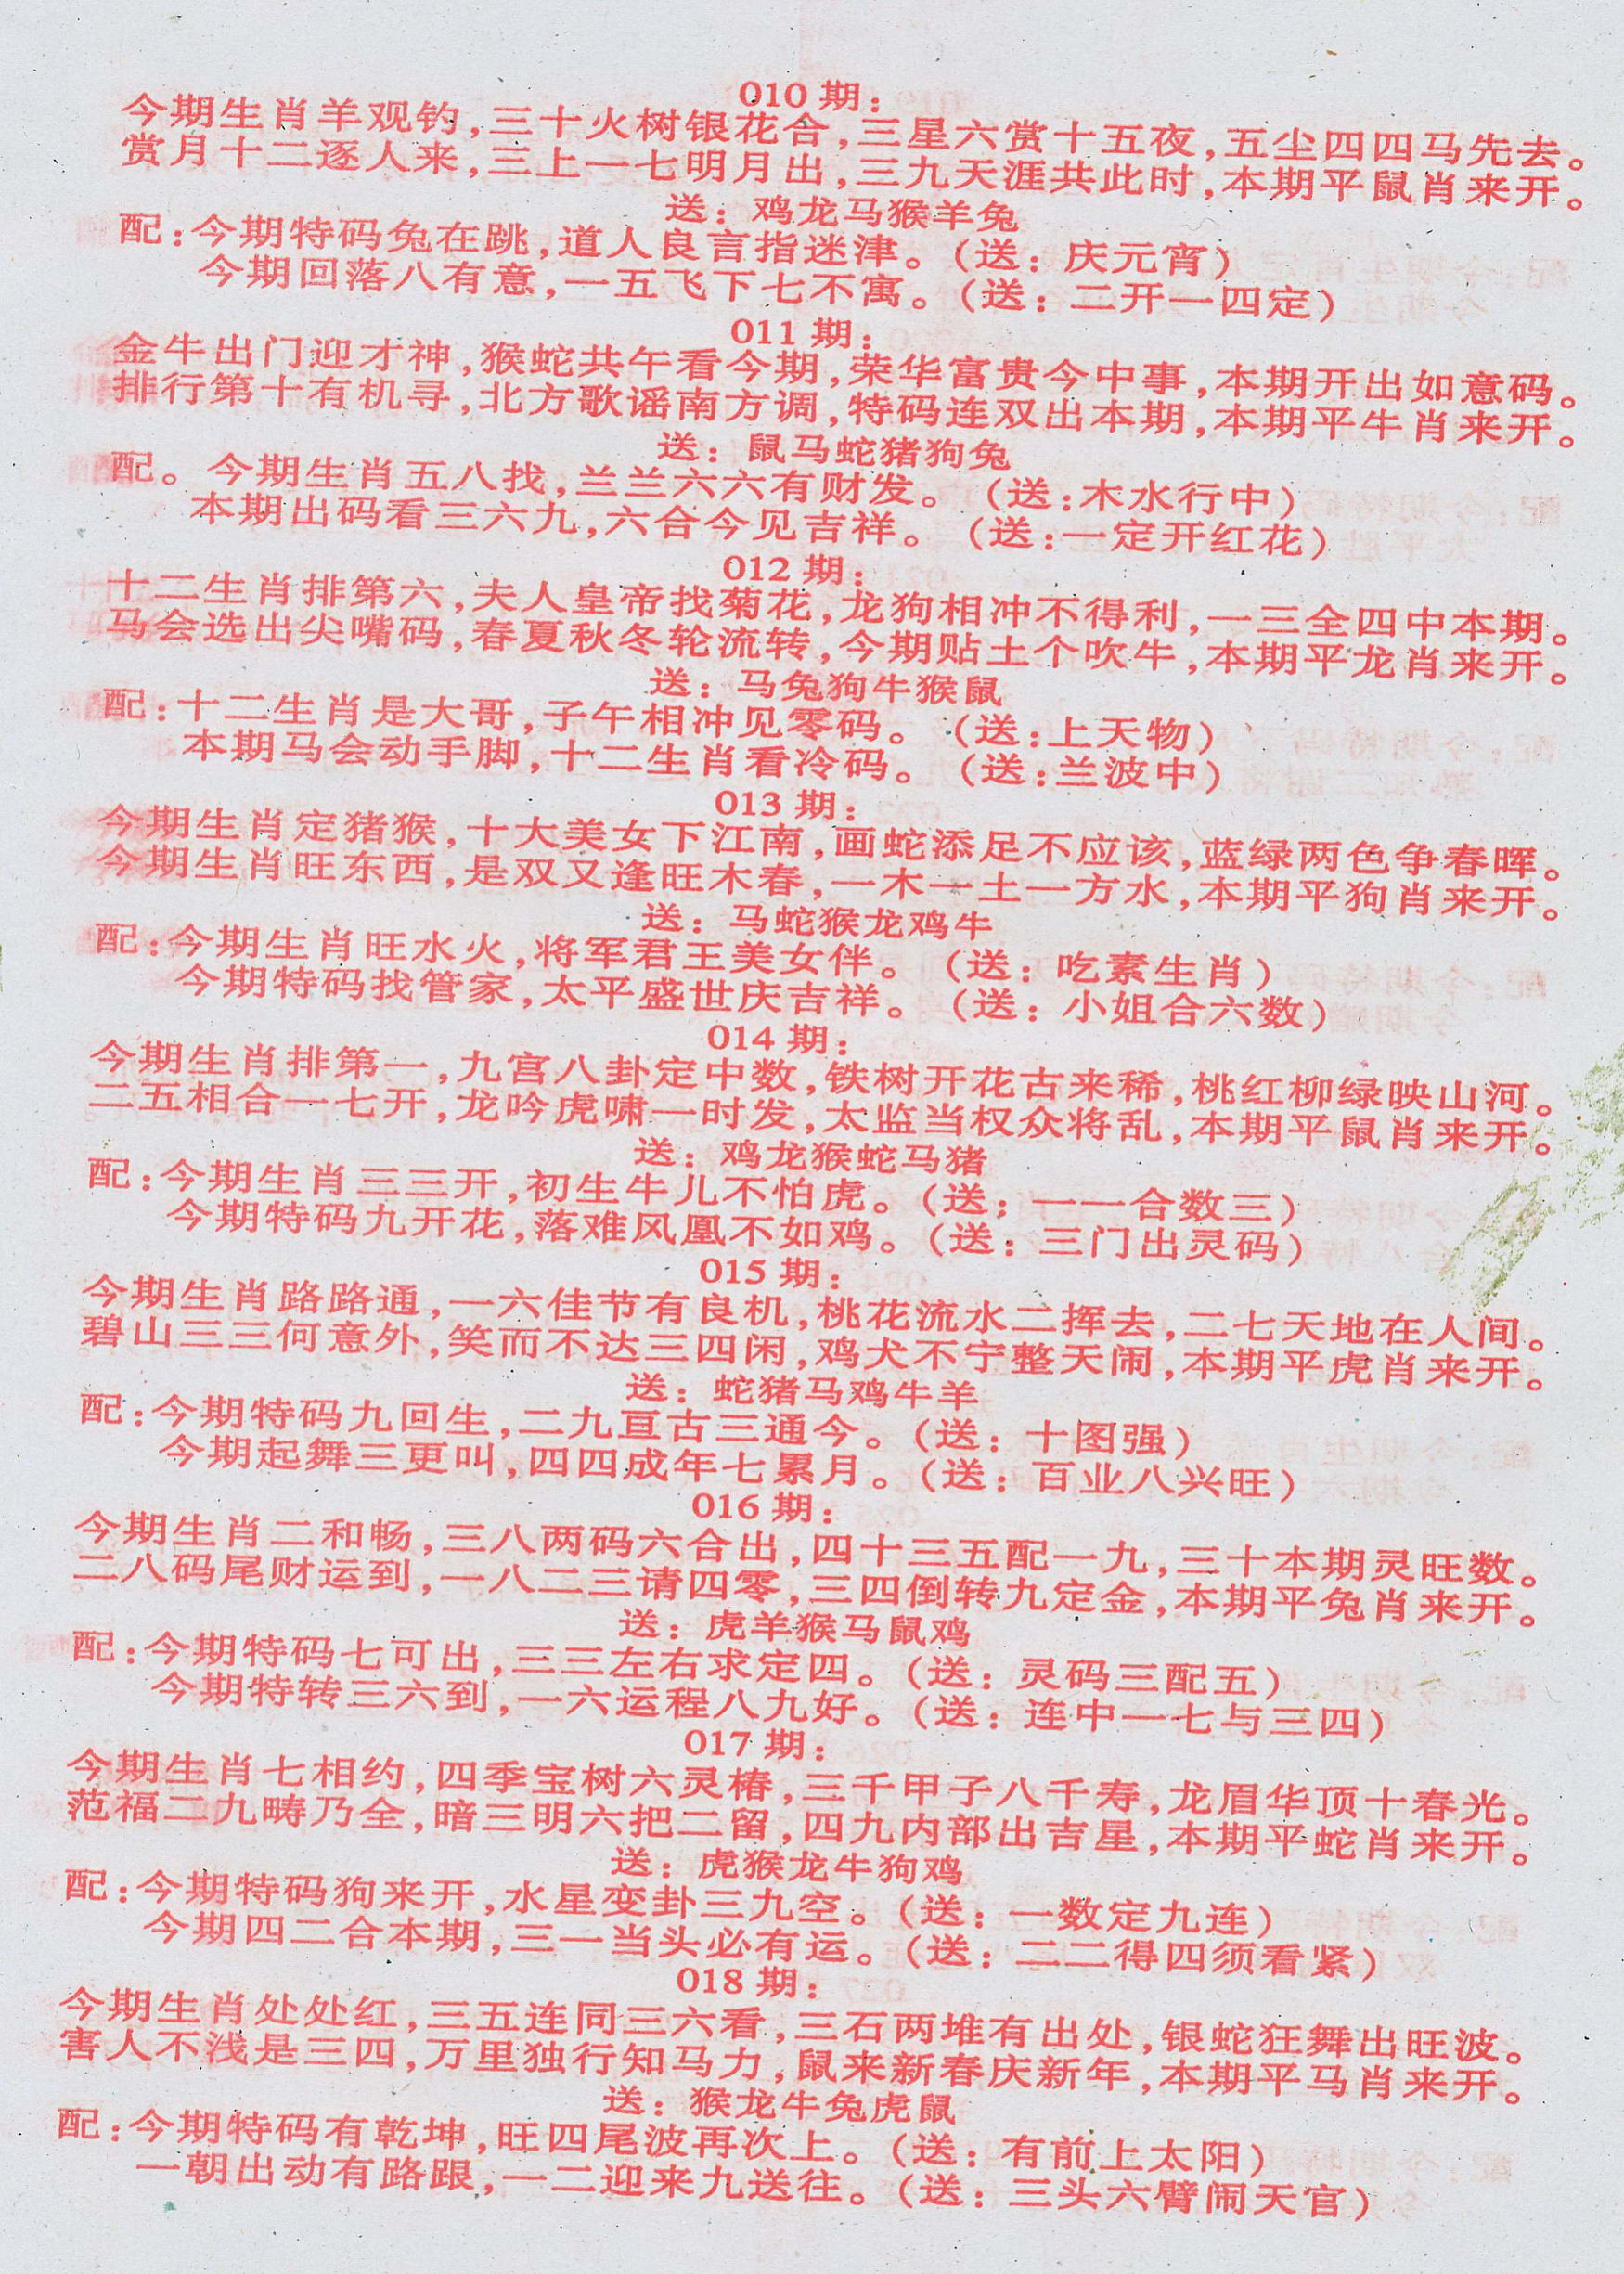 010 期：
今期生肖羊观钓，三十火树银花合，三星六赏十五夜，五尘四四马先去。
赏月十二逐人来，三上一七明月出，三九天涯共此时，本期平鼠肖来开。
送：鸡龙马猴羊兔
配：今期特码兔在跳，道人良言指迷津。（送：庆元宵）
今期回落八有意，一五飞下七不寓。（送：二开一四定）
011 期：
金牛出门迎才神，猴蛇共午看今期，荣华富贵今中事，本期开出如意码。
排行第十有机寻，北方歌谣南方调，特码连双出本期，本期平牛肖来开。
送：鼠马蛇猪狗兔
配。今期生肖五八找，兰兰六六有财发。（送：木水行中）
本期出码看三六九，六合今见吉祥。（送：一定开红花）
012 期：
十二生肖排第六，夫人皇帝找菊花，龙狗相冲不得利，一三全四中本期。
马会选出尖嘴码，春夏秋冬轮流转，今期贴土个吹牛，本期平龙肖来开。
送：马兔狗牛猴鼠
配：十二生肖是大哥，子午相冲见零码。（送：上天物）
本期马会动手脚，十二生肖看冷码。（送：兰波中）
013 期：
今期生肖定猪猴，十大美女下江南，画蛇添足不应该，蓝绿两色争春晖。
今期生肖旺东西，是双又逢旺木春，一木一土一方水，本期平狗肖来开。
送：马蛇猴龙鸡牛
配：今期生肖旺水火，将军君王美女伴。（送：吃素生肖）
今期特码找管家，太平盛世庆吉祥。（送：小姐合六数）
014 期：
今期生肖排第一，九宫八卦定中数，铁树开花古来稀，桃红柳绿映山河。
二五相合一七开，龙吟虎啸一时发，太监当权众将乱，本期平鼠肖来开。
送：鸡龙猴蛇马猪
配：今期生肖三三开，初生牛儿不怕虎。（送：一一合数三）
今期特码九开花，落难风凰不如鸡。（送：三门出灵码）
015 期：
今期生肖路路通，一六佳节有良机，桃花流水二挥去，二七天地在人间。
碧山三三何意外，笑而不达三四闲，鸡犬不宁整天闹，本期平虎肖来开。
送：蛇猪马鸡牛羊
配：今期特码九回生，二九亘古三通今。（送：十图强）
今期起舞三更叫，四四成年七累月。（送：百业八兴旺）
016 期：
今期生肖二和畅，三八两码六合出，四十三五配一九，三十本期灵旺数。
二八码尾财运到，一八二三请四零，三四倒转九定金，本期平兔肖来开。
送：虎羊猴马鼠鸡
配：今期特码七可出，三三左右求定四。（送：灵码三配五）
今期特转三六到，一六运程八九好。（送：连中一七与三四）
017 期：
今期生肖七相约，四季宝树六灵椿，三千甲子八千寿，龙眉华顶十春光。
范福二九畴乃全，暗三明六把二留，四九内部出吉星，本期平蛇肖来开。
送：虎猴龙牛狗鸡
配：今期特码狗来开，水星变卦三九空。（送：一数定九连）
今期四二合本期，三一当头必有运。（送：二二得四须看紧）
018 期：
今期生肖处处红，三五连同三六看，三石两堆有出处，银蛇狂舞出旺波。
害人不浅是三四，万里独行知马力，鼠来新春庆新年，本期平马肖来开。
送：猴龙牛兔虎鼠
配：今期特码有乾坤，旺四尾波再次上。（送：有前上太阳）
一朝出动有路跟，一二迎来九送往。（送：三头六臂闹天官）